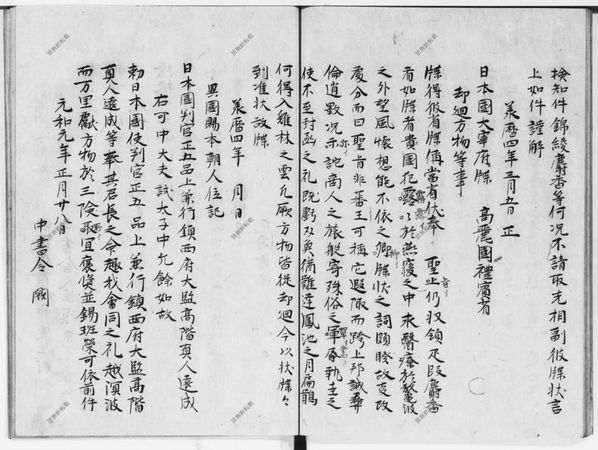 檢知件錦綾麝香等何況不請取充相副彼牒状言
上如件謹解
承暦四年三月五日 正
日本國大宰府牒 高麗國禮賓省
却廻方物等事
牒得彼省牒偁當省伏奉 聖止仍収領疋段麝香
者如牒者貴國犯露於燕寢之中求醫療於鼇波
之外望風懐想能不依之卿牒状之詞頗睽故㕝改
處分而曰聖旨非蕃王可稱宅遐陬而跨上邦誠彝
倫道斁況亦託商人之旅艇寄殊俗之單書執圭之
使不至封函之礼既虧双魚猶難達鳳池之月扁鵲
何得入雞林之雲凡厥方物皆従却廻今以状牒々
到准状故牒
承暦四年 月日
異國賜本朝人位記
日本國判官正五品上兼行鎮西府大監高階真人遠成
右可中大夫試太子中允餘如故
勅日本國使判官正五品上兼行鎮西府大監高階
真人遠成等奉其君長之命趨我會同之礼越溟波
而万里獻方物於三険取宜褒奨並錫班榮可依前件
元和元年正月廿八日
中書令 闕